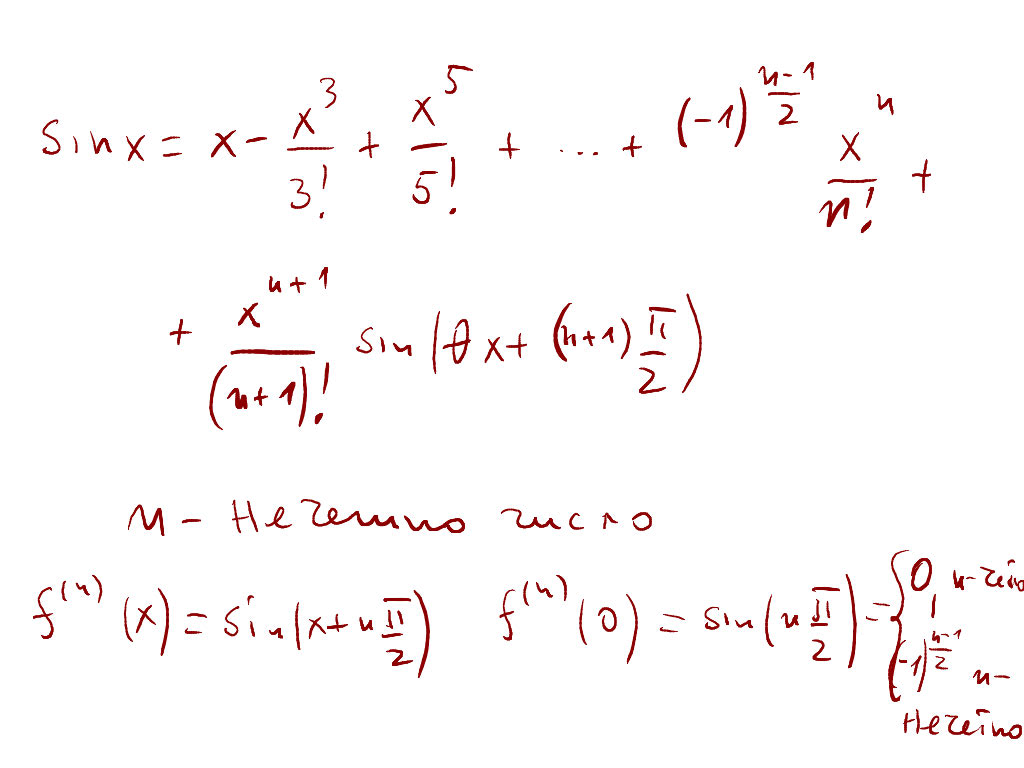 sin x = x - x^3/3! + x^5/5! + ... + (-1)^((n-1)/2) x^n/n! +
+ x^(n+1)/(n+1)! sin(θx + (n+1) π/2)
n - нечетно число
f^(n)(x) = sin(x + n π/2) f^(n)(0) = sin(n π/2) = { 0, n - четно
(-1)^((n-1)/2) n -
нечетно